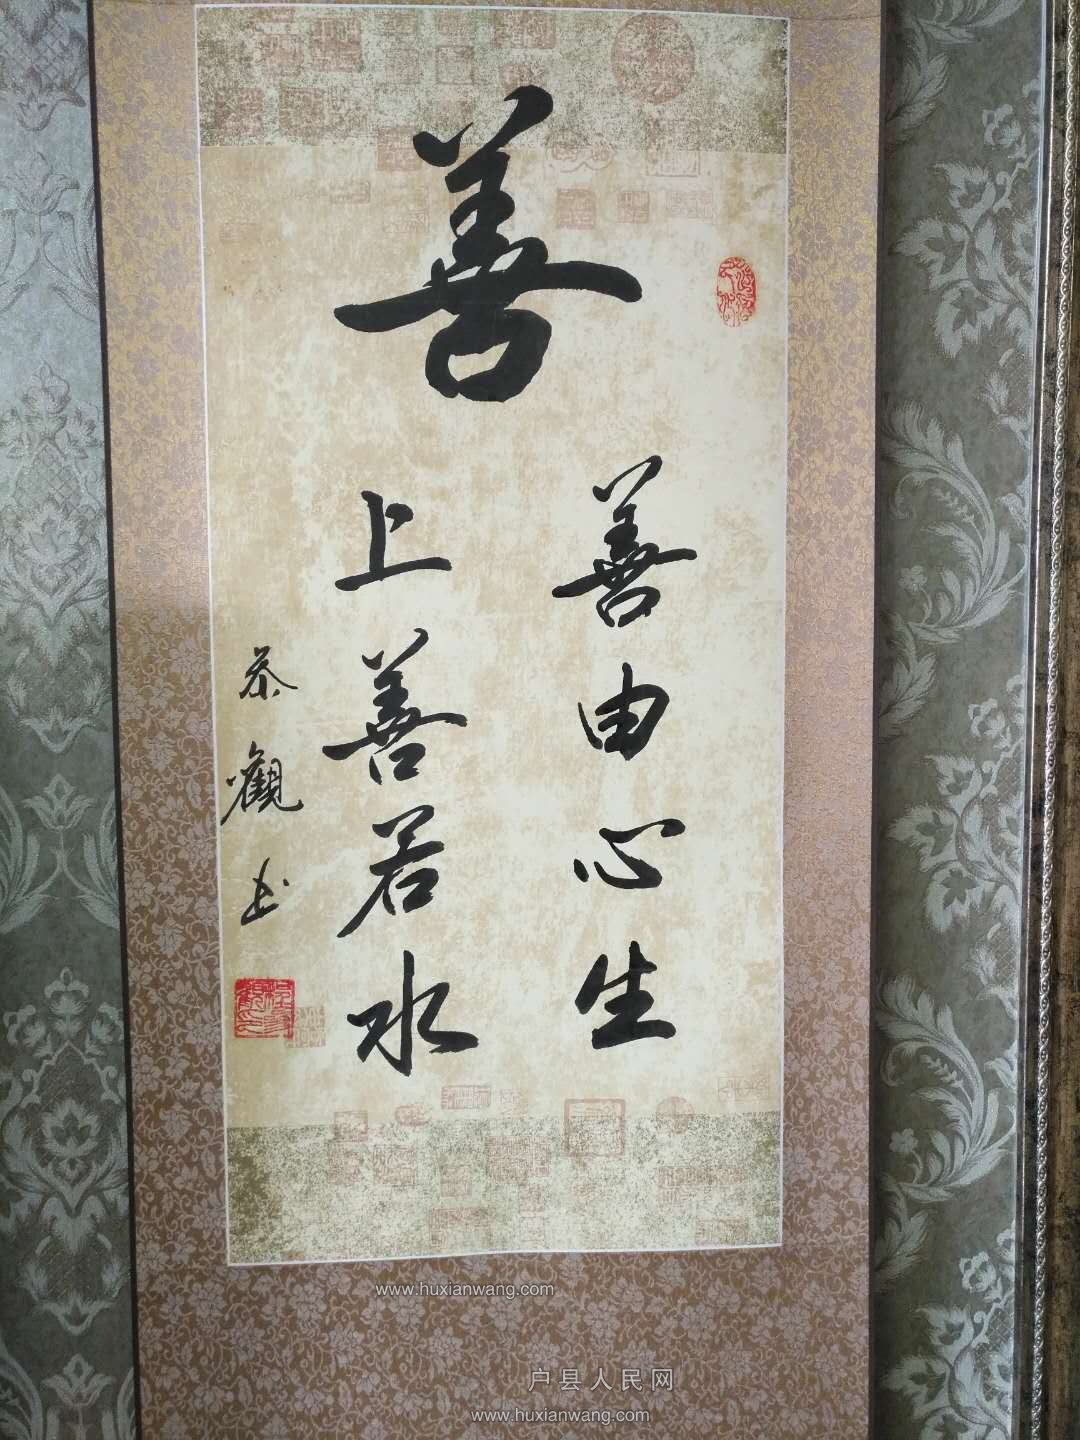 善
善由心生
上善若水
恭觀书
www.huxianwang.com
户县人民网
www.huxianwang.com